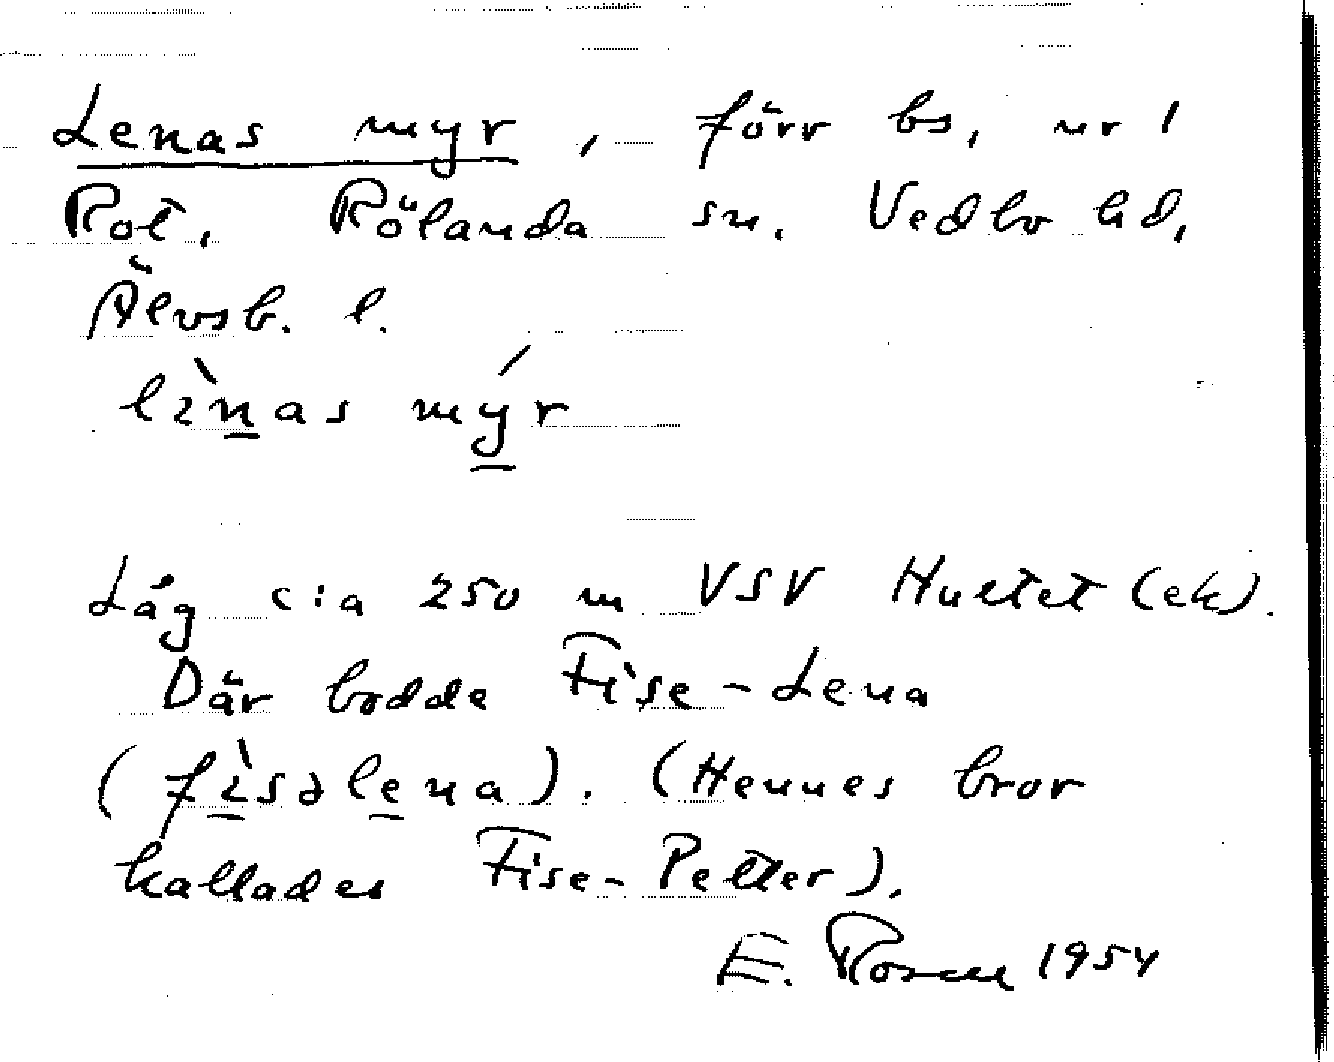 Lenas myr, förr bs, nr 1
Rot, Rölanda sn. Vedbo hd,
Älvsb. l.
lènas mýr
Låg c:a 250 m VSV Hultet (ek).
Där bodde Fise-Lena
(fìsəlena). (Hennes bror
kallades Fise-Petter).
E. Rosell 1954